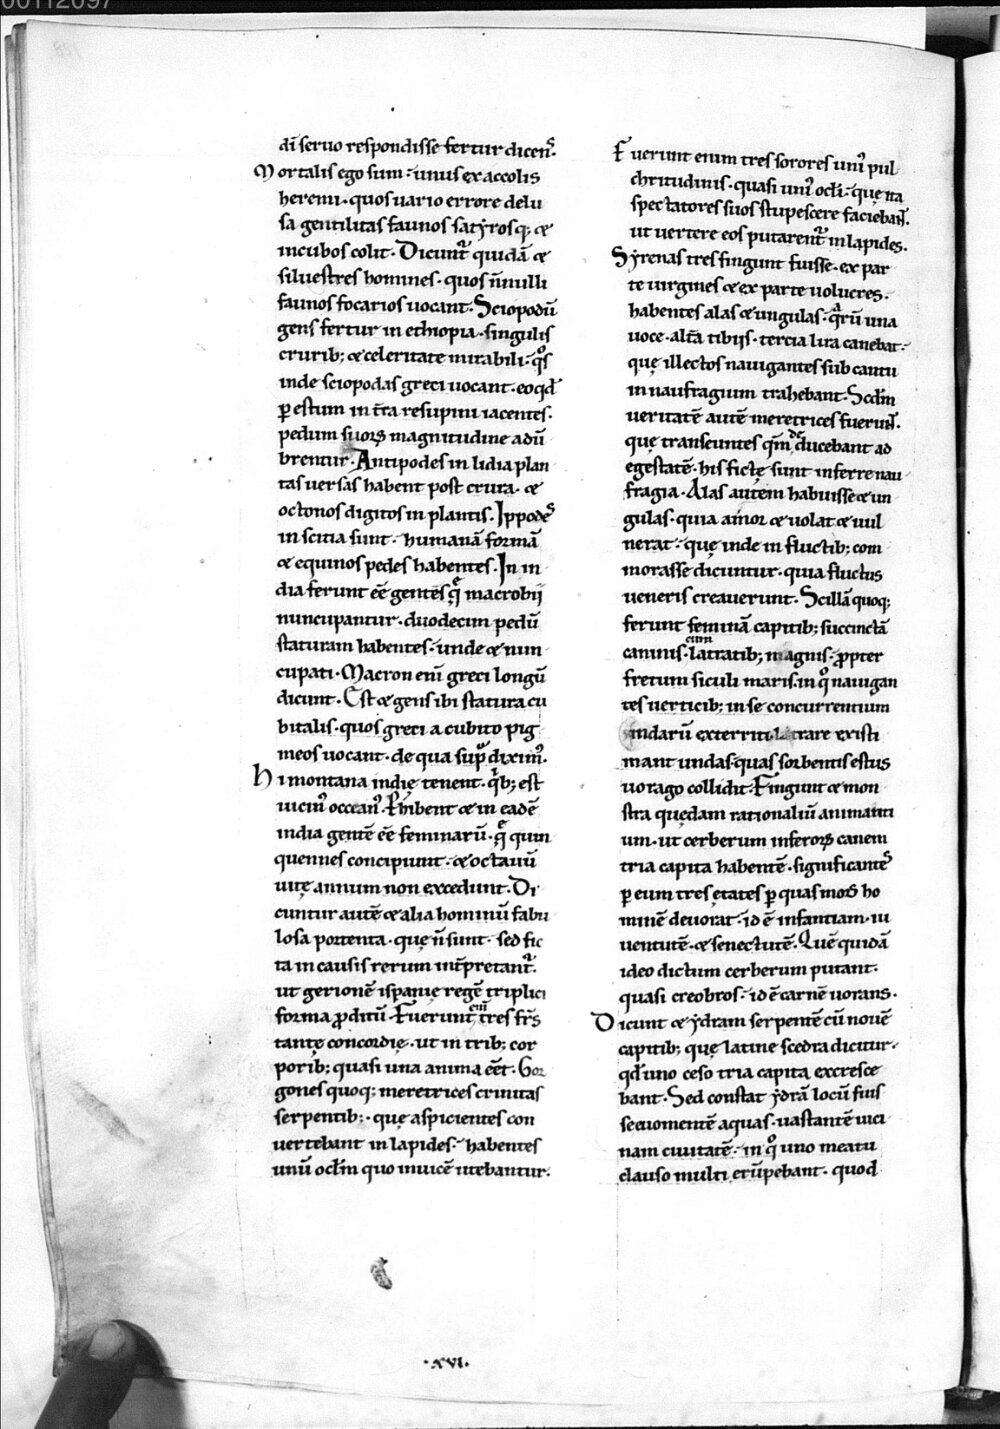 00112097
dī seruo respondisse fertur dicenꝰ.
Mortalis ego sum. unus ex accolis
heremi. quos uario errore delu
sa gentilitas faunos satyrosq; &
incubos colit. Dicunt᷑ quidā &
siluestres homines. quos n̄nulli
faunos focarios uocant. Sciopodū
gens fertur in ethiopia. singulis
crurib; & celeritate mirabili. qͦs
inde sciopodas greci uocant. eo qđ
ꝑ estum in t̄ra resupini iacentes.
pedum suoꝝ magnitudine adū
brentur. Antipodes in lidia plan
tas uersas habent post crura. &
octonos digitos in plantis. Ippodeˢ
in scitia sunt. humanā formā
& equinos pedes habentes. In in
dia ferunt eē gentes q̄ macrobij
nuncupantur. duodecim pedū
staturam habentes. unde & nun
cupati. Macron enī greci longū
dicunt. Est & gens ibi statura cu
bitalis. quos greci a cubito pig
meos uocant. de qua supͣ diximꝰ.
Hi montana indię tenent. qͥb; est
uicinꝰ occeanꝰ. Phibent & in eadē
india gentē eē feminarū. q̄ quin
quennes concipiunt. & octauū
uitę annum non excedunt. Di
cuntur autē & alia hominū fabu
losa portenta. quę n̄ sunt. sed fic
ta in causis rerum int̄pretant᷑.
ut gerionē ispanię regē triplici
forma ꝓditū. Fuerunt enī tres fr̄s
tantę concordię. ut in trib; cor
porib; quasi una anima eēt. Gor
gones quoq; meretrices crinitas
serpentib;. quę aspicientes con
uertebant in lapides. habentes
unū oclm̄ quo inuicē utebantur.
Fuerunt enim tres sorores unꝰ pul
chritudinis. quasi unꝰ ocli. quę ita
spectatores suos stupescere faciebaɴ̄t.
ut uertere eos putarent᷑ in lapides.
Syrenas tres fingunt fuisse. ex par
te uirgines & ex parte uolucres.
habentes alas & ungulas. qͣrū una
uoce. altā tibijs. tercia lira canebat.
quę illectos nauigantes sub cantu
in naufragium trahebant. Scdm̄
ueritatē autē meretrices fuerunt̄.
quę transeuntes qm̄ deducebant ad
egestatē. his fictę sunt inferre nau
fragia. Alas autem habuisse & un
gulas. quia amor & uolat & uul
nerat. quę inde in fluctib; com
morasse dicuntur. quia fluctus
ueneris creauerunt. Scillā quoq;
ferunt feminā capitib; succinctā
caninis. cum latratib; magnis. ꝓpter
fretum siculi maris. in qͦ nauigan
tes uerticib; in se concurrentium
undarū exterriti latrare existi
mant undas. quas sorbentis estus
uorago collidit. Fingunt & mon
stra quędam rationaliū animanti
um. ut cerberum inferoꝝ canem
tria capita habentē. significanteˢ
ꝑ eum tres ętates ꝑ quas mors ho
minē deuorat. id ē infantiam. iu
uentutē. & senectutē. Quē quidā
ideo dictum cerberum putant.
quasi creobros. id ē carnē uorans.
Dicunt & ydram serpentē cū nouē
capitib; quę latine scedra dicitur.
qđ uno ceso tria capita excresce
bant. Sed constat ydrā locū fuis
se euomentē aquas. uastantē uici
nam ciuitatē. in qͦ uno meatu
clauso multi erūpebant. quod
.XVI.